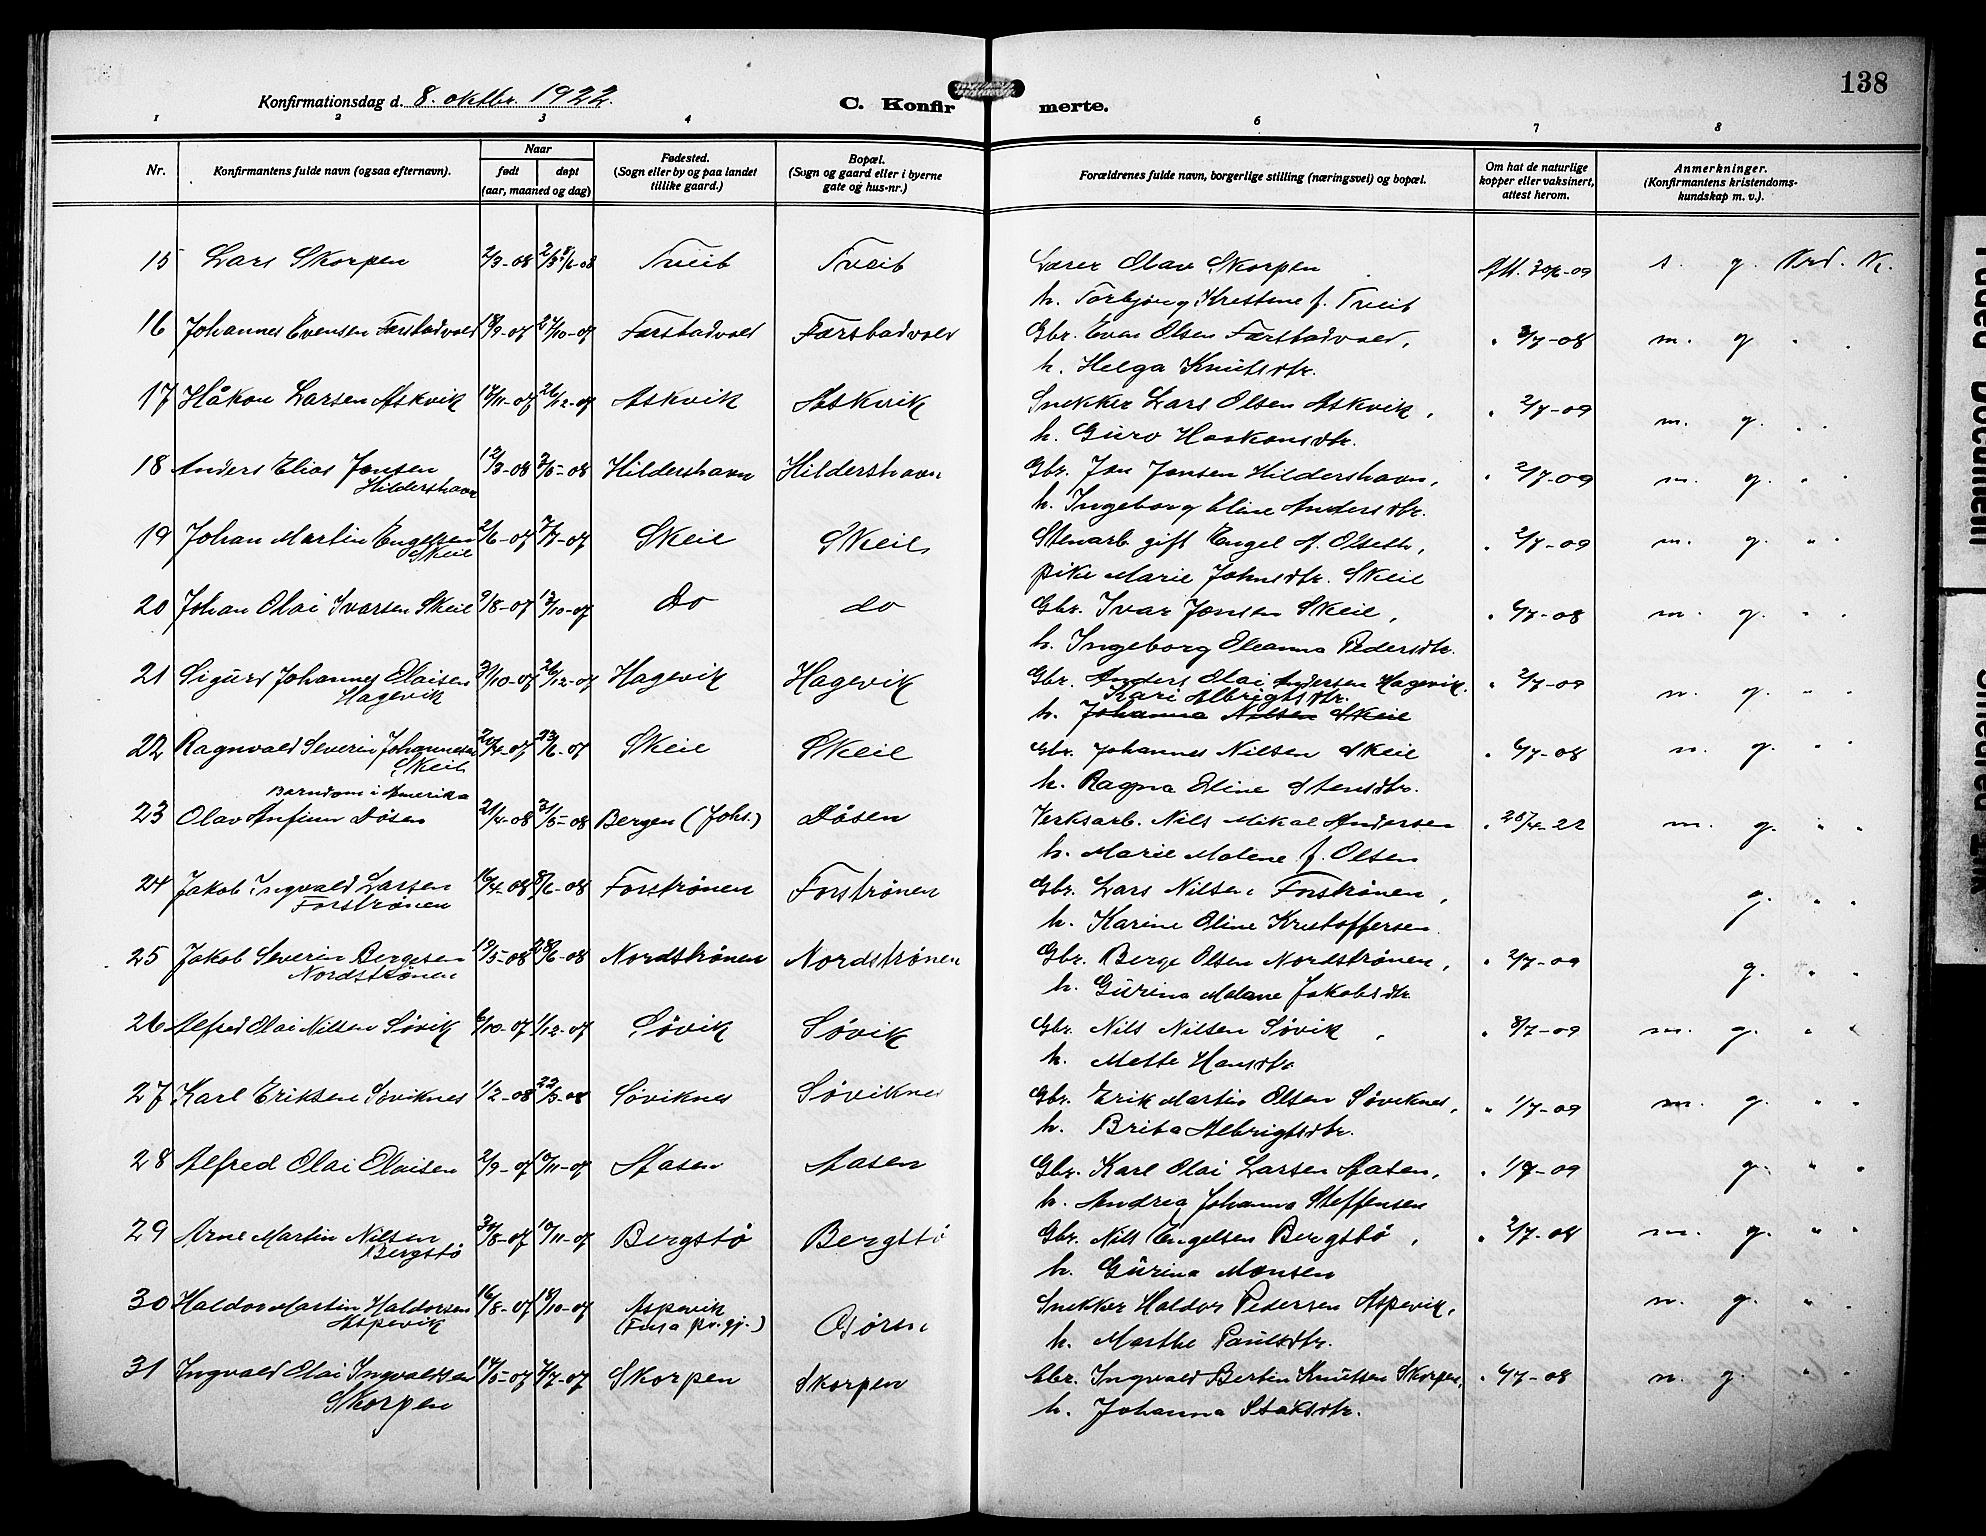 138
Konfirmationsdag d. 8. oktbr. 1922.
C. Konfirmerte.
1 2 3 4 5 6 7 8
Nr. Konfirmantens fulde navn (ogsaa efternavn). Naar født døpt (aar, maaned og dag) Fødested. (Sogn eller by og paa landet tillike gaard.) Bopæl. (Sogn og gaard eller i byerne gate og hus-nr.) Forældrenes fulde navn, borgerlige stilling (næringsvei) og bopæl. Om hat de naturlige kopper eller vaksinert, attest herom. Anmerkninger. (Konfirmantens kristendoms-kundskap m. v.).
15 Lars Skorpen 2/3-08 Tveit Tveit Lærer Olav Skorpen s. g. Krd. K.
h. Torbjørg Kristine f. Tveit
16 Johannes Evensen Færstadvold 18/9-07 27/10-07 Færstadvold Færstadvold Gbr. Even Olsen Færstadvold, " 3/7-08 m. g. " "
h. Helga Knutsdtr.
17 Håkon Larsen Askvik 17/11-07 26/12-07 Askvik Askvik Snekker Lars Olsen Askvik, " 2/7-09 m. g. " "
h. Guro Haakonsdtr.
18 Anders Elias Jonsen 12/3-08 3/5-08 Hildershavn Hildershavn Gbr. Jon Jonsen Hildershavn, " 2/7-09 m. g. " "
Hildershavn h. Ingeborg Eline Andersdtr.
19 Johan Martin Engelsen 2/6-07 7/7-07 Skeil Skeil Stenarb. gift Engel A. Olseth, " 2/7-09 m. g. " "
Skeil pike Marie Johnsdtr. Skeil
20 Johan Olai Ivarsen Skeil 9/8-07 13/10-07 do do Gbr. Ivar Jonsen Skeil, " 6/7-08 m. g. " "
h. Ingeborg Oleanna Pedersdtr.
21 Sigurd Johannes Olaisen 3/10-07 26/12-07 Hagevik Hagevik Gbr. Anders Olai Andersen Hagevik. " 2/7-09 n. g. " "
Hagevik Kari Albrigtsdtr.
h. Johanna Nilsen Skeil
22 Ragnvald Severin Johannesen 20/4-07 23/6-07 Skeil Skeil Gbr. Johannes Nilsen Skeil " 6/7-08 n. g. " "
Skeil h. Ragna Eline Stensdtr.
Barndom i Amerika
23 Olav Anfinn Døsen 21/4-08 31/5-08 Bergen (Johs.) Døsen Verksarb. Nils Mikal Andersen " 28/4-22 m. g. " "
h. Marie Malene f. Olsen
24 Jakob Ingvald Larsen 16/4-08 8/6-08 Forstrønen Forstrønen Gbr. Lars Nilsen Forstrønen, g. " "
Forstrønen h. Karine Oline Kristoffersen
25 Jakob Severin Bergesen 19/5-08 28/6-08 Nordstrønen Nordstrønen Gbr. Berge Olsen Nordstrønen, " 2/7-09 g. " "
Nordstrønen h. Gurina Malene Jakobsdtr.
26 Alfred Olai Nilsen Søvik 6/10-07 1/12-07 Søvik Søvik Gbr. Nils Nilsen Søvik, " 8/7-09 m. g. " "
h. Mette Hansdtr.
27 Karl Eriksen Søviknes 1/2-08 22/3-08 Søviknes Søviknes Gbr. Erik Martin Olsen Søviknes, " 1/7-09 m. g. " "
h. Brita Albrigtsdtr.
28 Alfred Olai Olaisen 2/9-07 10/11-07 Aasen Aasen Gbr. Karl Olai Larsen Aasen, g. " "
h. Andrea Johanna Steffensen
29 Arne Martin Nilsen 30/8-07 10/11-07 Bergstø Bergstø Gbr. Nils Engelsen Bergstø, " 2/7-08 m. g. " "
Bergstø h. Gurina Monsen
30 Haldor Martin Haldorsen 16/8-07 18/10-07 Aspevik Snekker Haldor Pedersen Aspevik, n. g. " "
Aspevik (Fusa pr.gj.) h. Marthe Paulsdtr.
31 Ingvald Olai Ingvaldsen 17/5-07 7/7-07 Skorpen Skorpen Gbr. Ingvald Bertin Knutsen Skorpen, " 6/7-08 n. g. " "
Skorpen h. Johanna Isaksdtr.